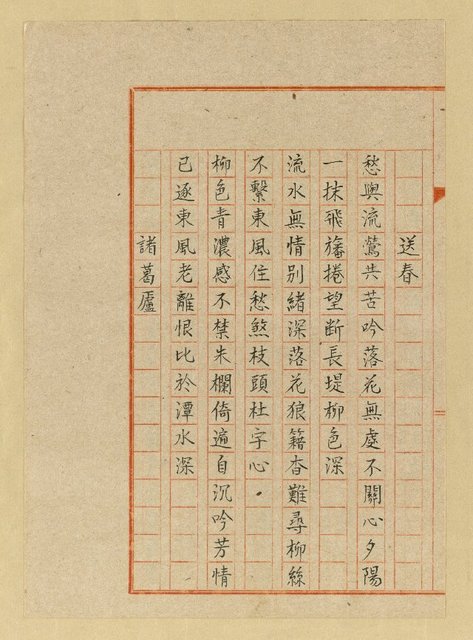 送春
愁與流鶯共苦吟落花無處不關心夕陽
一抹飛旛捲望斷長堤柳色深
流水無情別緒深落花狼籍杳難尋柳絲
不繫東風住愁煞枝頭杜宇心．
柳色青濃感不禁朱欄倚遍自沉吟芳情
已逐東風老離恨比於潭水深
諸葛廬